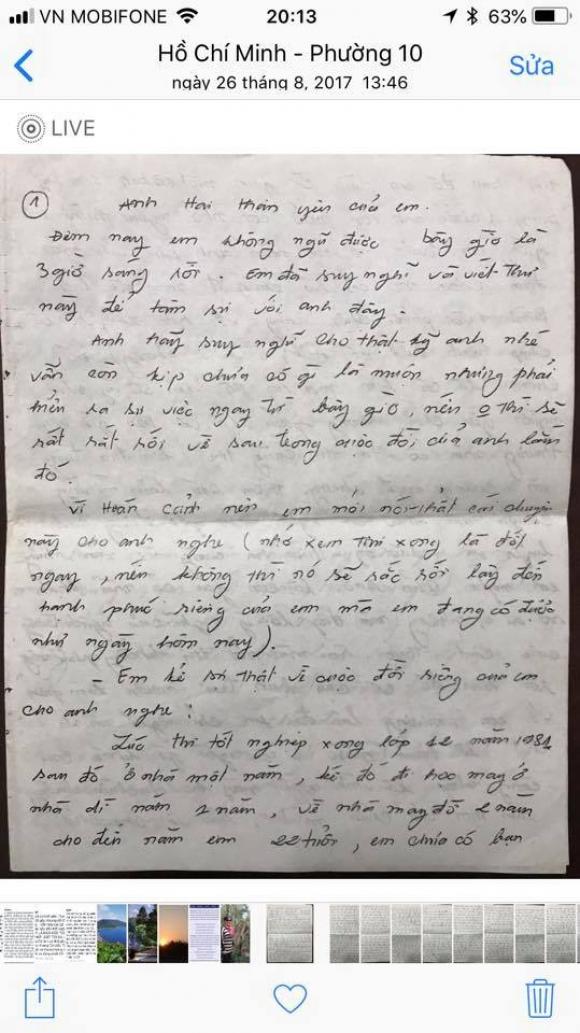 VN MOBIFONE 20:13 63%
Hồ Chí Minh - Phường 10
ngày 26 tháng 8, 2017 13:46
Sửa
LIVE
1 Anh Hai thân yêu của em.
Đêm nay em không ngủ được bây giờ là
3giờ sáng rồi. Em đã suy nghĩ và viết thư
này để tâm sự với anh đây.
Anh hãy suy nghĩ cho thật kỹ anh nhé
vẫn còn kịp chưa có gì là muộn nhưng phải
ra sự việc ngay từ bây giờ, nếu 0 thì sẽ
rất rắc rối về sau trong cuộc đời của anh lắm
đó.
Vì Hoàn cảnh nên em mới nói thật cái chuyện
này cho anh nghe (nhớ xem thư xong là đốt
ngay, nếu không thì nó sẽ rắc rối lây đến
hạnh phúc riêng của em mà em đang có được
như ngày hôm nay).
- Em kể sự thật về cuộc đời riêng của em
cho anh nghe:
Lúc thi tốt nghiệp xong lớp 12 năm 1981
sau đó ở nhà một năm, kế đó đi học may ở
nhà dì năm 1 năm, về nhà may đồ 2 năm
cho đến năm em 22 tuổi, em chưa có bạn